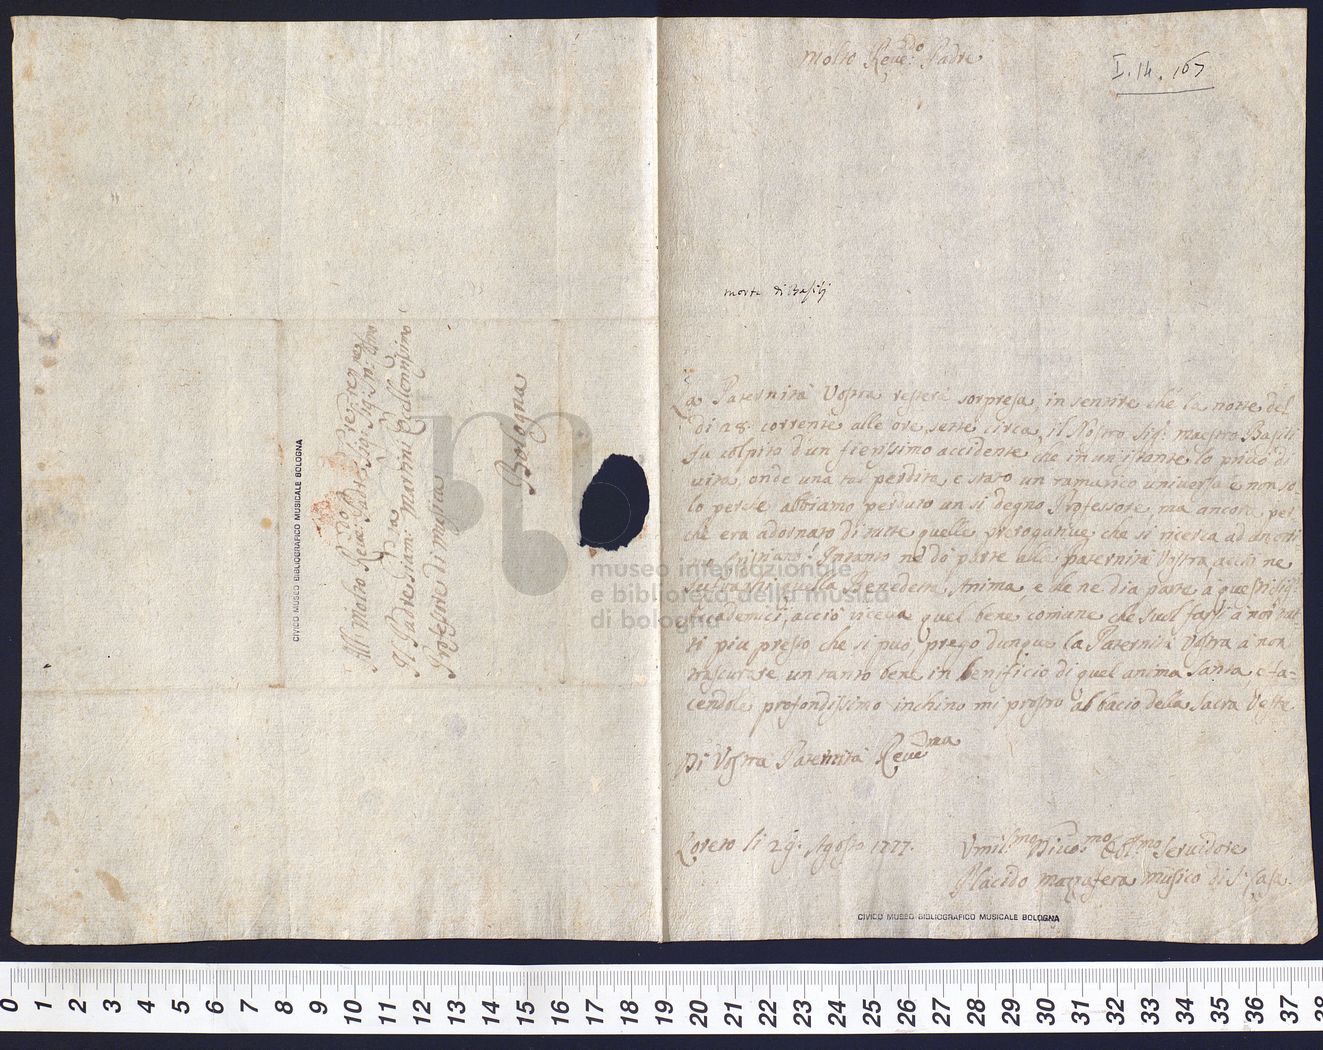 Molto Reve:do Padre
I. 14. 167
morte di Basilj
La Paternità Vostra resterà sorpresa in sentire che la notte del
di 28. corrente alle ore sette circa il Nostro Sig.r maestro Basili
fu colpito d'un fierissimo accidente che in un istante lo privò di
vita, onde una tal perdita è stato un ramarico universale non so-
lo perchè abbiamo perduto un si degno Professore, ma ancora per
che era adornato di tutte quelle prerogative che si ricerca ad un otti
mo cristiano! Intanto ne dò parte alla paternità Vostra acciò ne
quella Benedetta Anima e che ne dia parte a questi Sig.ri
Accademici, acciò riceva quel bene comune che suol farsi a noi tut
ti più presto che si può, prego dunque la Paternità Vostra a non
trascurare un tanto bene in benificio di quel anima santa, e fa-
cendole profondissimo inchino mi prostro al bacio della Sacra Veste
Di Vostra Paternità Reve.ma
Loreto li 29. Agosto 1777.
Umil.mo Divo.mo Obl.mo Servidore
Placido mazzafera musico di S. Casa
CIVICO MUSEO BIBLIOGRAFICO MUSICALE BOLOGNA
All Molto Reve:do Padre Sig: Sig: Pron:
Il Padre martini Eccellentissimo
Professore di musica
Bologna
CIVICO MUSEO BIBLIOGRAFICO MUSICALE BOLOGNA
museo internazionale
e biblioteca della musica
di bologna
0 1 2 3 4 5 6 7 8 9 10 11 12 13 14 15 16 17 18 19 20 21 22 23 24 25 26 27 28 29 30 31 32 33 34 35 36 37 38